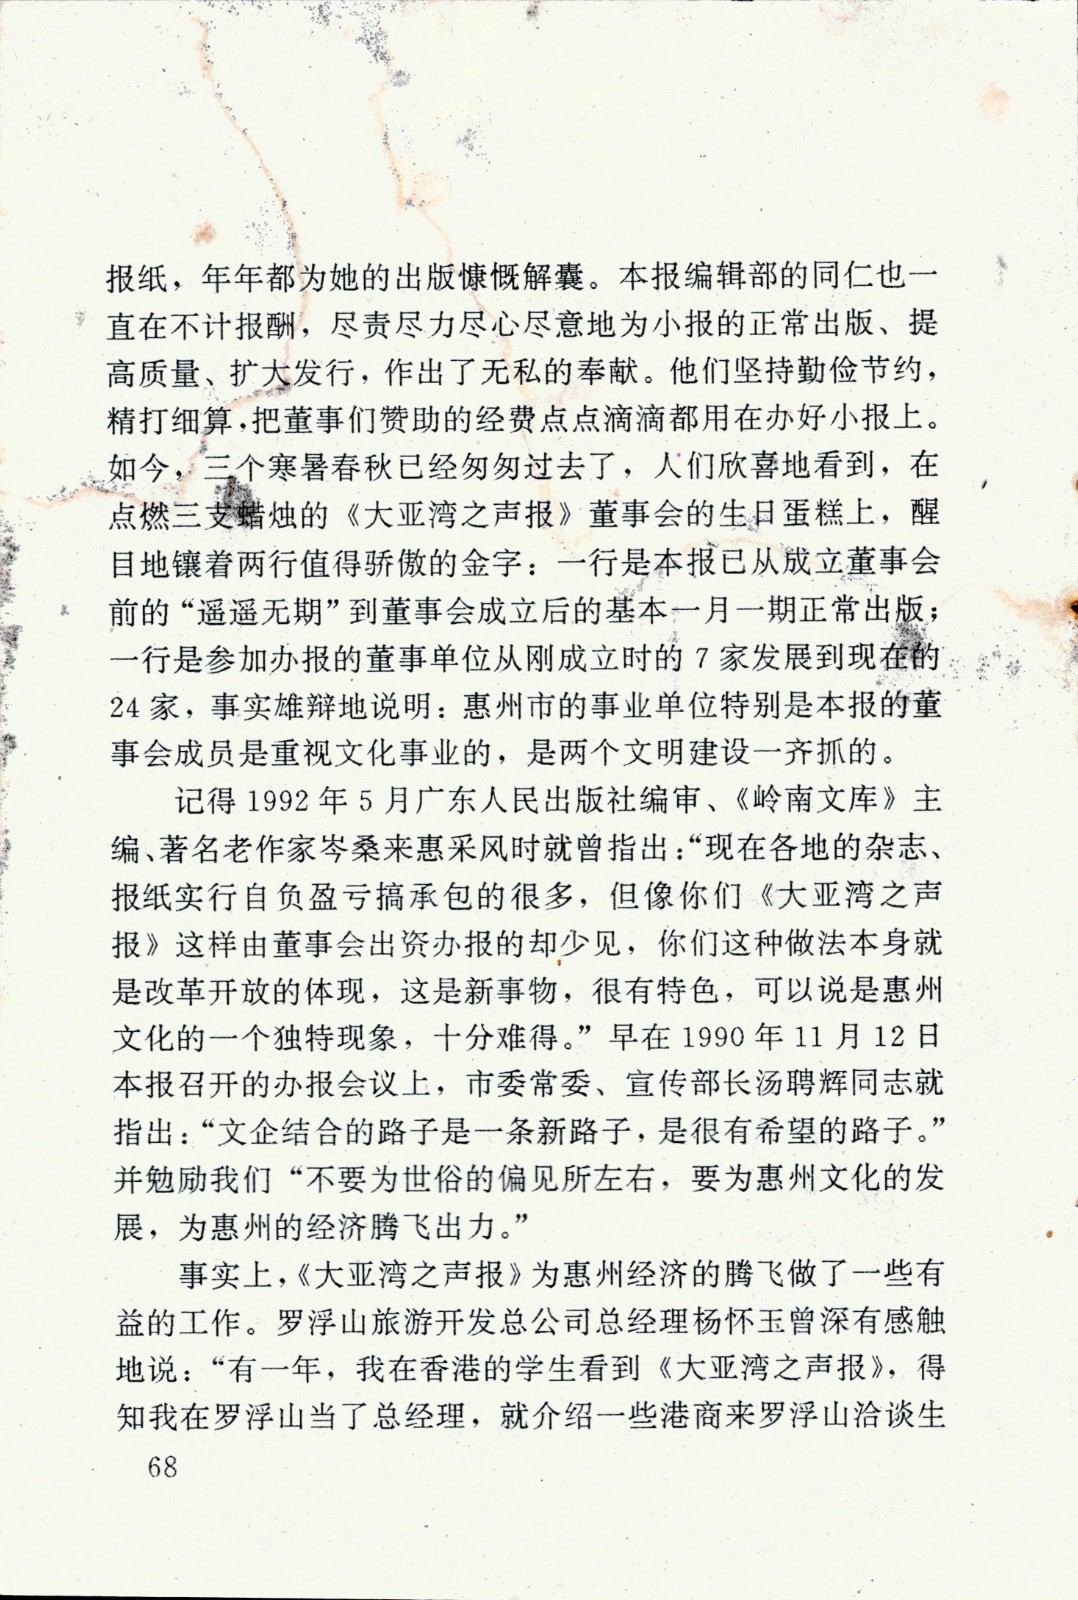 报纸，年年都为她的出版慷慨解囊。本报编辑部的同仁也一
直在不计报酬，尽责尽力尽心尽意地为小报的正常出版、提
高质量、扩大发行，作出了无私的奉献。他们坚持勤俭节约，
精打细算，把董事们赞助的经费点点滴滴都用在办好小报上。
如今，三个寒暑春秋已经匆匆过去了，人们欣喜地看到，在
点燃三支蜡烛的《大亚湾之声报》董事会的生日蛋糕上，醒
目地镶着两行值得骄傲的金字：一行是本报已从成立董事会
前的“遥遥无期”到董事会成立后的基本一月一期正常出版；
一行是参加办报的董事单位从刚成立时的 7 家发展到现在的
24 家，事实雄辩地说明：惠州市的事业单位特别是本报的董
事会成员是重视文化事业的，是两个文明建设一齐抓的。
记得 1992 年 5 月广东人民出版社编审、《岭南文库》主
编、著名老作家岑桑来惠采风时就曾指出：“现在各地的杂志、
报纸实行自负盈亏搞承包的很多，但像你们《大亚湾之声
报》这样由董事会出资办报的却少见，你们这种做法本身就
是改革开放的体现，这是新事物，很有特色，可以说是惠州
文化的一个独特现象，十分难得。”早在 1990 年 11 月 12 日
本报召开的办报会议上，市委常委、宣传部长汤聘辉同志就
指出：“文企结合的路子是一条新路子，是很有希望的路子。”
并勉励我们“不要为世俗的偏见所左右，要为惠州文化的发
展，为惠州的经济腾飞出力。”
事实上，《大亚湾之声报》为惠州经济的腾飞做了一些有
益的工作。罗浮山旅游开发总公司总经理杨怀玉曾深有感触
地说：“有一年，我在香港的学生看到《大亚湾之声报》，得
知我在罗浮山当了总经理，就介绍一些港商来罗浮山洽谈生
68